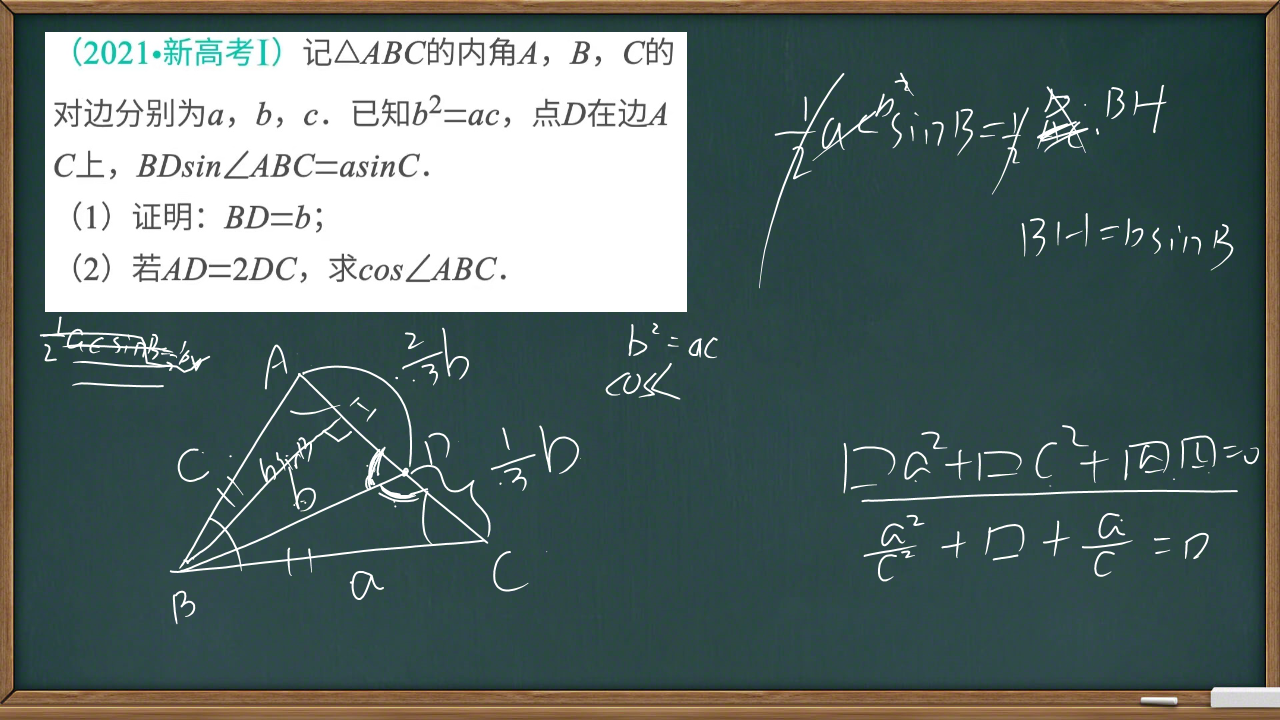 (2021•新高考Ⅰ)记△ABC的内角A，B，C的
对边分别为a，b，c．已知b²=ac，点D在边A
C上，BDsin∠ABC=asinC．
（1）证明：BD=b；
（2）若AD=2DC，求cos∠ABC．
1/2 ac b² sinB = 1/2 · BH
BH=bsinB
1/2 acsinB=
b²=ac
cos<
A
2/3 b
C
bsinB
b
D
1/3 b
B
a
C
□a²+□c²+□a□=0
a²/c² + □ + a/c = 0